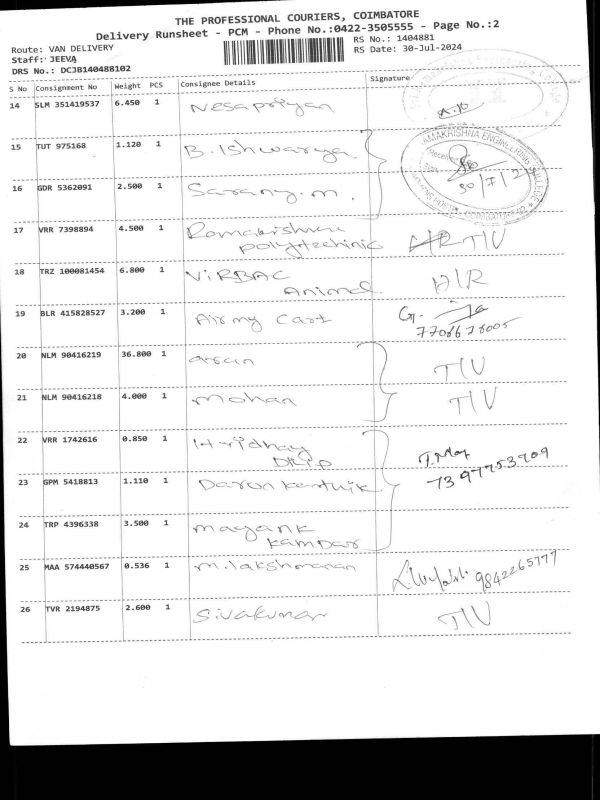 THE PROFESSIONAL COURIERS, COIMBATORE
Delivery Runsheet - PCM - Phone No.:0422-3505555 - Page No.:2
Route: VAN DELIVERY
RS No.: 1404881
Staff: JEEVA
RS Date: 30-Jul-2024
DRS No.: DCJB140488102
S No Consignment No Weight PCS Consignee Details Signature
14 SLM 351419537 6.450 1 Nesapriyan
15 TUT 975168 1.120 1 B. Ishwarya
RAMAKRISHNA ENGINEERING COLLEGE
16 GDR 5362091 2.500 1 Sarany.m. 30/7/24
17 VRR 7398894 4.500 1 Ramakrishna
polytechinic T/V
18 TRZ 100081454 6.800 1 ViRBAC
Animal D/R
19 BLR 415828527 3.200 1 Airmy Cart G.
7708678005
20 NLM 90416219 36.800 1 T/V
21 NLM 90416218 4.000 1 mohan T/V
22 VRR 1742616 0.850 1 Hridhay
Dilip
23 GPM 5418813 1.110 1 Darun Karthik 7397753909
24 TRP 4396338 3.500 1 mayank
kampar
25 MAA 574440567 0.536 1 m.lakshmanan 9842265777
26 TVR 2194875 2.600 1 Sivakumar T/V